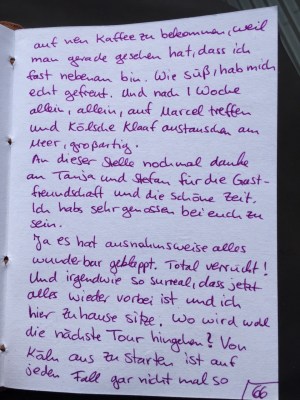 auf nen Kaffee zu bekommen, weil
man gerade gesehen hat, dass ich
fast nebenan bin. Wie süß, hab mich
echt gefreut. Und nach 1 Woche
allein, allein, auf Marcel treffen
und Kölsche Klaaf austauschen am
Meer, großartig.
An dieser Stelle nochmal danke
an Tanja und Stefan für die Gast-
freundschaft und die schöne Zeit.
Ich habs sehr genossen bei euch zu
sein.
Ja es hat ausnahmsweise alles
wunderbar geklappt. Total verrückt!
Und irgendwie so surreal, dass jetzt
alles wieder vorbei ist und ich
hier zuhause sitze. Wo wird wohl
die nächste Tour hingehen? Von
Köln aus zu starten ist auf
jeden Fall gar nicht mal so
66